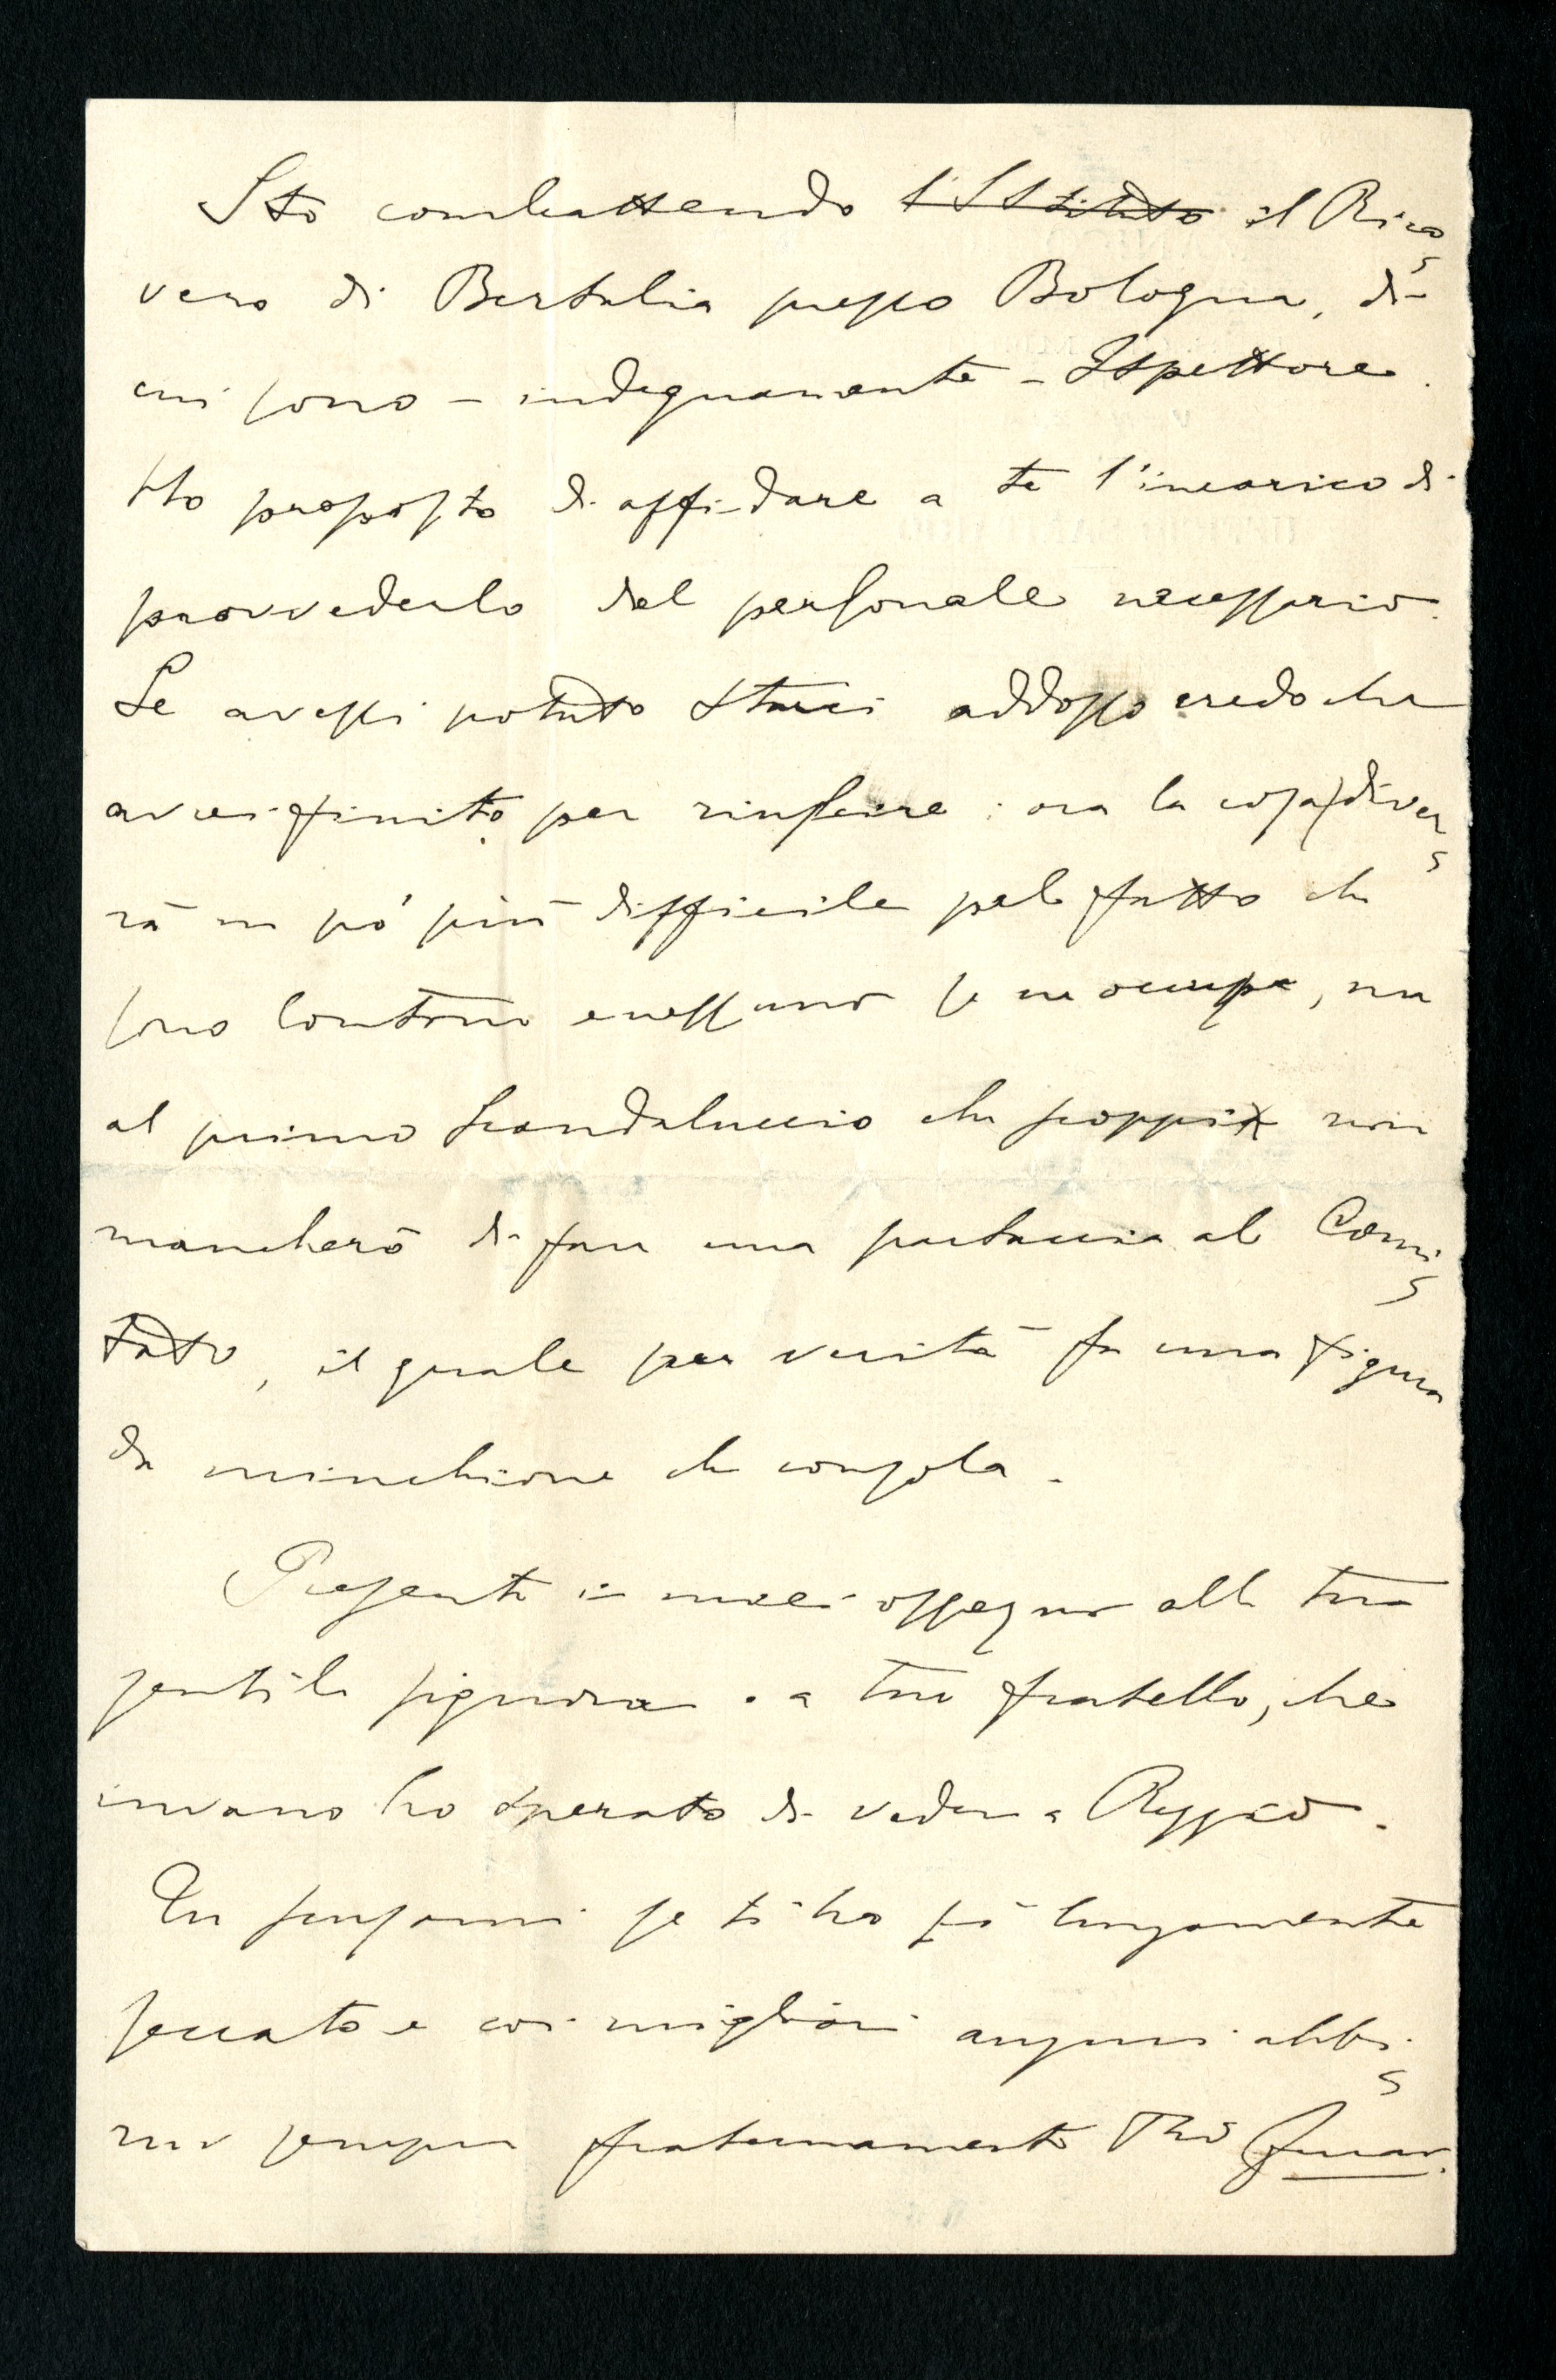 Stò combattendo l'Istituto il Rico
vero di Bertalia presso Bologna, di
cui sono – indegnamente – Ispettore.
Ho proposto di affidare a te l'incarico di
provvederlo del personale necessario.
Se avessi potuto starci addosso credo che
avrei finito per riuscire; ora la cosa diver
rà un pò più difficile pel fatto che
sono lontano e nessuno se ne occupa, ma
al primo scandaluccio che scoppia non
mancherò di fare una partaccia al Comi
tato, il quale per verità fa una figura
da minchione che consola.
Presenta i miei ossequi alla tua
gentile signora e a tuo fratello, che
invano ho sperato di vedere a Reggio.
Tu scusami se ti ho sì lungamente
seccato e coi migliori auguri abbi
mi sempre fraternamente Tuo